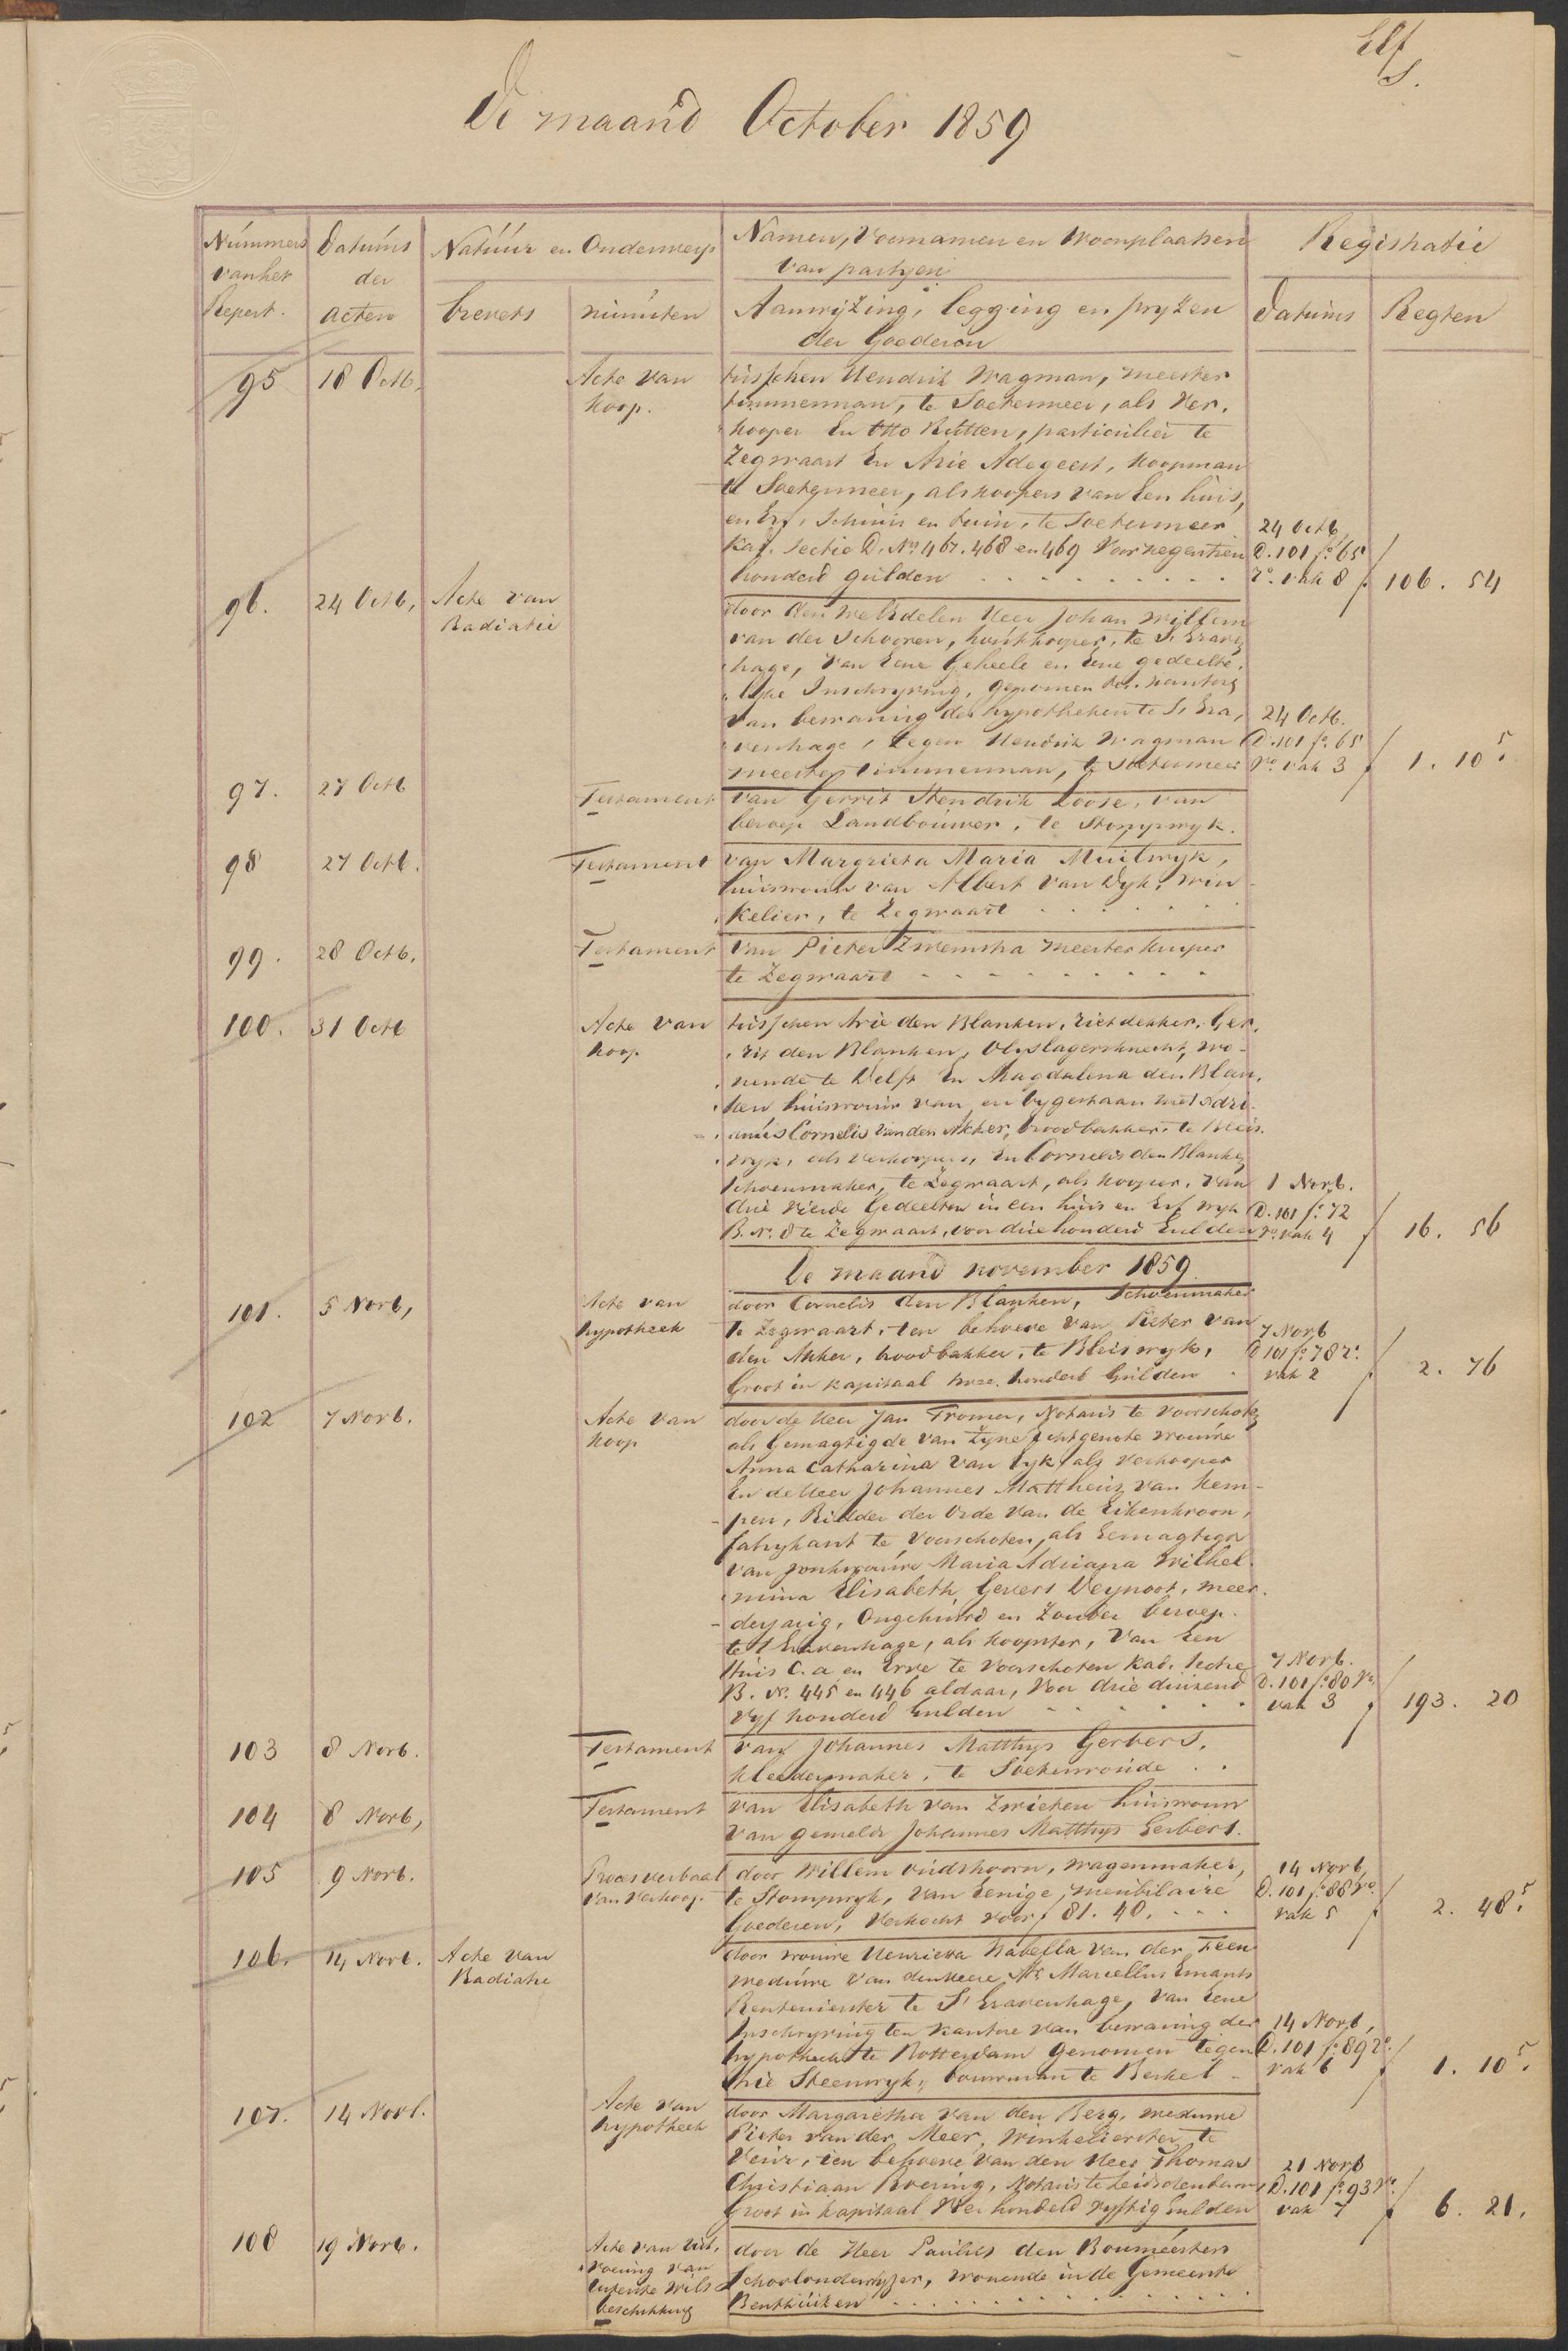 Elf
De maand October 1859
Nummers van het Repert.
Datums der acten
Natuur en Onderwerp
brevets
minuten
Namen, Voornamen en Woonplaatsen
van partijen
Aanwijzing, legging en pryzen
der Goederen
Registratie
Datums
Regten
95 18 Octb. Acte van tusschen Hendrik Wagman, meester
koop. timmerman, te Soetermeer, als Ver,
kooper En Otto Rutten, particulier te
Zegwaart En Arie Adegeest, koopman
te Soetermeer, als koopers van Een huis,
en Erf, Schuur en tuin, te Soetermeer 24 Octb.
Kad. Sectie D. No. 467. 468 en 469 Voor negentien D. 101 fo. 65
honderd gulden ro. vak 8 f 106. 54
96. 24 Octb, Acte van door den WelEdelen Heer Johan Willem
Radiatie van der Schooren, houtkooper, te S' Graven
hage, van Eene Geheele en Eene gedeelte,
lyke Inschryving, genomen ten kantore
van bewaring der hypotheken te S' Gra, 24 Octb.
venhage, tegen Hendrik Wagman D. 101 fo. 65
meester timmerman, te Soetermeer Vo. vak 3 f 1. 10 5.
97. 27 Octb Testament van Gerrit Hendrik Loose, van
beroep Landbouwer, te Stompwyk.
98 27 Octb. Testament van Margrieta Maria Muitwyk,
huisvrouw van Albert van Dyk, win
kelier, te Zegwaart
99. 28 Octb. Testament van Pieter Zwemstra meester kuiper
te Zegwaart
100. 31 Octb Acte van tusschen Arie den Blanken, rietdekker, Ger,
koop rit den Blanken, Olyslagersknecht, wo-
nende te Delft En Magdalena den Blan,
ken huisvrouw van en bygestaan met Adri-
anus Cornelis van den Akker, broodbakker, te Bleis.
wyk, als verkoopers, En Cornelis den Blanken
Schoenmaker, te Zegwaart, als kooper, van 1 Novb.
drie vierde Gedeelten in een huis en Erf wyk D. 101 fo. 72
B. No. 8 te Zegwaart, voor drie honderd Gulden Vo. vak 4 f 16. 56
De maand november 1859
101. 5 Novb, Acte van door Cornelis den Blanken, Schoenmaker
hypotheek Te Zegwaart, ten behoeve van Pieter van 7 Novb
den Akker, broodbakker, te Bleiswyk, D 101 fo. 78 ro.
Groot in kapitaal twee honderd Gulden vak 2 f 2. 76
102 7 Novb. Acte van door de Heer Jan Tromer, Notaris te Voorschoten
koop als Gemagtigde van Zyne Echtgenote vrouwe
Anna Catharina van Eyk als Verkooper
En de Heer Johannes Mattheus van Kem-
pen, Ridder der Orde van de Eikenkroon,
fabrykant te Voorschoten, als Gemagtigde
van Jonkvrouwe Maria Adriana Wilhel.
mina Elisabeth, Gevers Deynoot, meer.
derjarig, Ongehuwd en Zonder beroep.
te S' Gravenhage, als koopster, Van Een
Huis C. a en Erve te Voorschoten Kad. Sectie 7 Novb.
B. No. 445 en 446 aldaar, Voor drie duizend D. 101 fo. 80 Vo.
Vyf honderd Gulden vak 3 f 193. 20
103 8 Novb. Testament van Johannes Matthys Gerbers.
kleedermaker, te Soeterwoude
104 8 Novb, Testament van Elisabeth van Zwieten huisvrouw
van gemelde Johannes Matthys Gerbers.
105 9 Novb. Proces verbaal door Willem Oudshoorn, wagenmaker, 14 Novb,
van Verkoop. te Stompwyk, van Eenige meubilaire D. 101 fo. 88 Vo
Goederen, Verkocht voor f 81. 40. vak 5 f 2. 48 5.
106. 14 Novb. Acte van door vrouwe Henrietta Isabella van der Feen
Radiatie weduwe van den Heere Mr Marcellus Emants
Rentenierster te S' Gravenhage, van Eene
Inschryving ten kantore van bewaring der 14 Novb,
hypotheken te Rotterdam genomen tegen D. 101 fo. 89 ro.
Arie Steenwyk, bouwman te Berkel vak 6 f 1. 10 5.
107. 14 Novb. Acte van door Margaretha van den Berg, weduwe
hypotheek Pieter van der Meer, Winkelierster, te
Veur, ten behoeve van den Heer Thomas 21 Novb
Christiaan Roering, Notaris te Leidschendam, D. 101 fo. 93 Vo.
Groot in kapitaal Vier honderd vyftig Gulden vak 7 f 6. 21.
108 19 Novb. Acte van Uit, door de Heer Paulus den Boumeester
voering van Schoolonderwyzer, wonende in de Gemeente
uiterste wils Benthuizen
beschikking